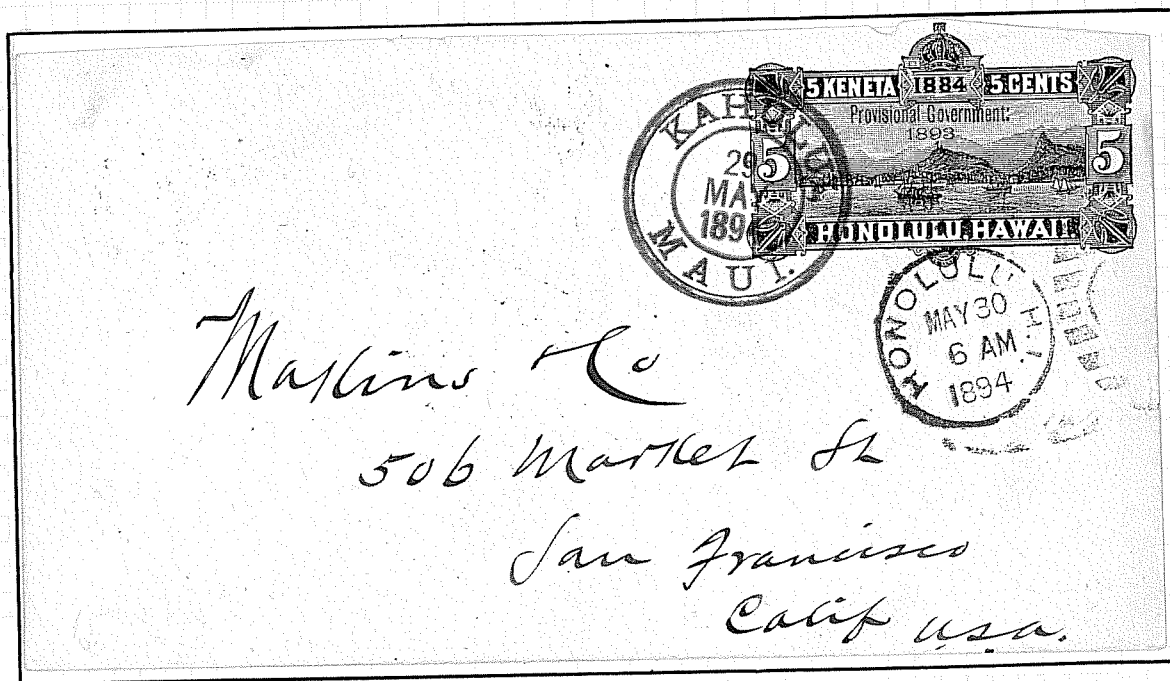 5 KENETA 1884 5 CENTS
Provisional Government:
1893.
5 5
HONOLULU, HAWAII.
KAHULUI
29
MAY
1894
MAUI.
HONOLULU H.I.
MAY 30
6 AM
1894
Co
506 Market St
San Francisco
Calif USA.